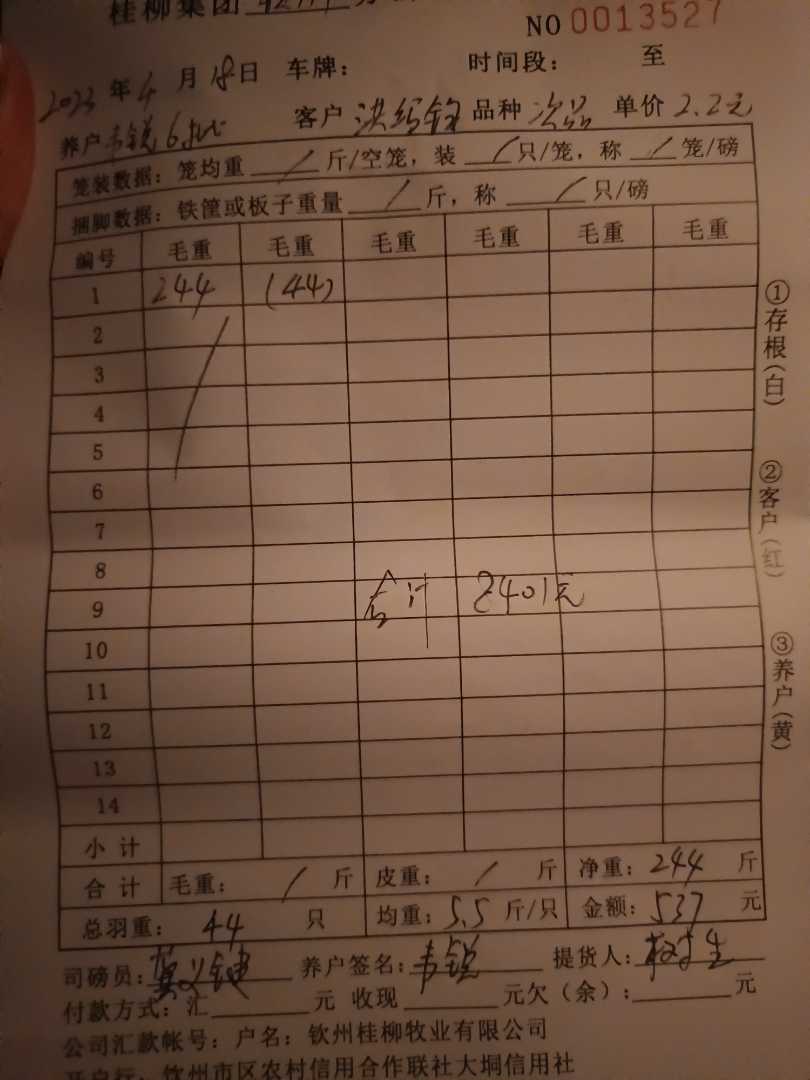 桂柳集团
NO 0013527
2023年4月18日 车牌: 时间段: 至
养户 韦锐6批 客户 洪绍钦 品种 次品 单价 2.2元
笼装数据: 笼均重 / 斤/空笼, 装 / 只/笼, 称 / 笼/磅
捆脚数据: 铁筐或板子重量 / 斤, 称 / 只/磅
编号 毛重 毛重 毛重 毛重 毛重 毛重
1 244 (44)
2
3
4
5
6
7
8
9 合计 2401元
10
11
12
13
14
小计
合计 毛重: / 斤 皮重: / 斤 净重: 244 斤
总羽重: 44 只 均重: 5.5 斤/只 金额: 537 元
司磅员: 养户签名: 韦锐 提货人:
付款方式: 汇 元 收现 元欠(余): 元
公司汇款帐号: 户名: 钦州桂柳牧业有限公司
开户行: 钦州市区农村信用合作联社大垌信用社
①存根(白)
②客户(红)
③养户(黄)